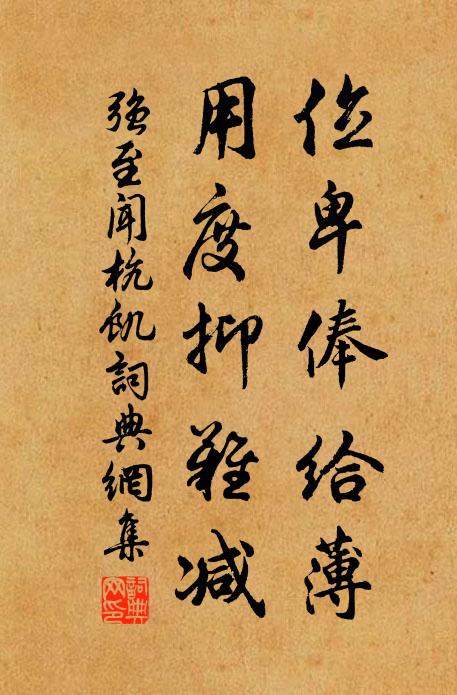 位卑俸给薄
用度抑难减
强至闻杭饥词典網集
詞典
网印